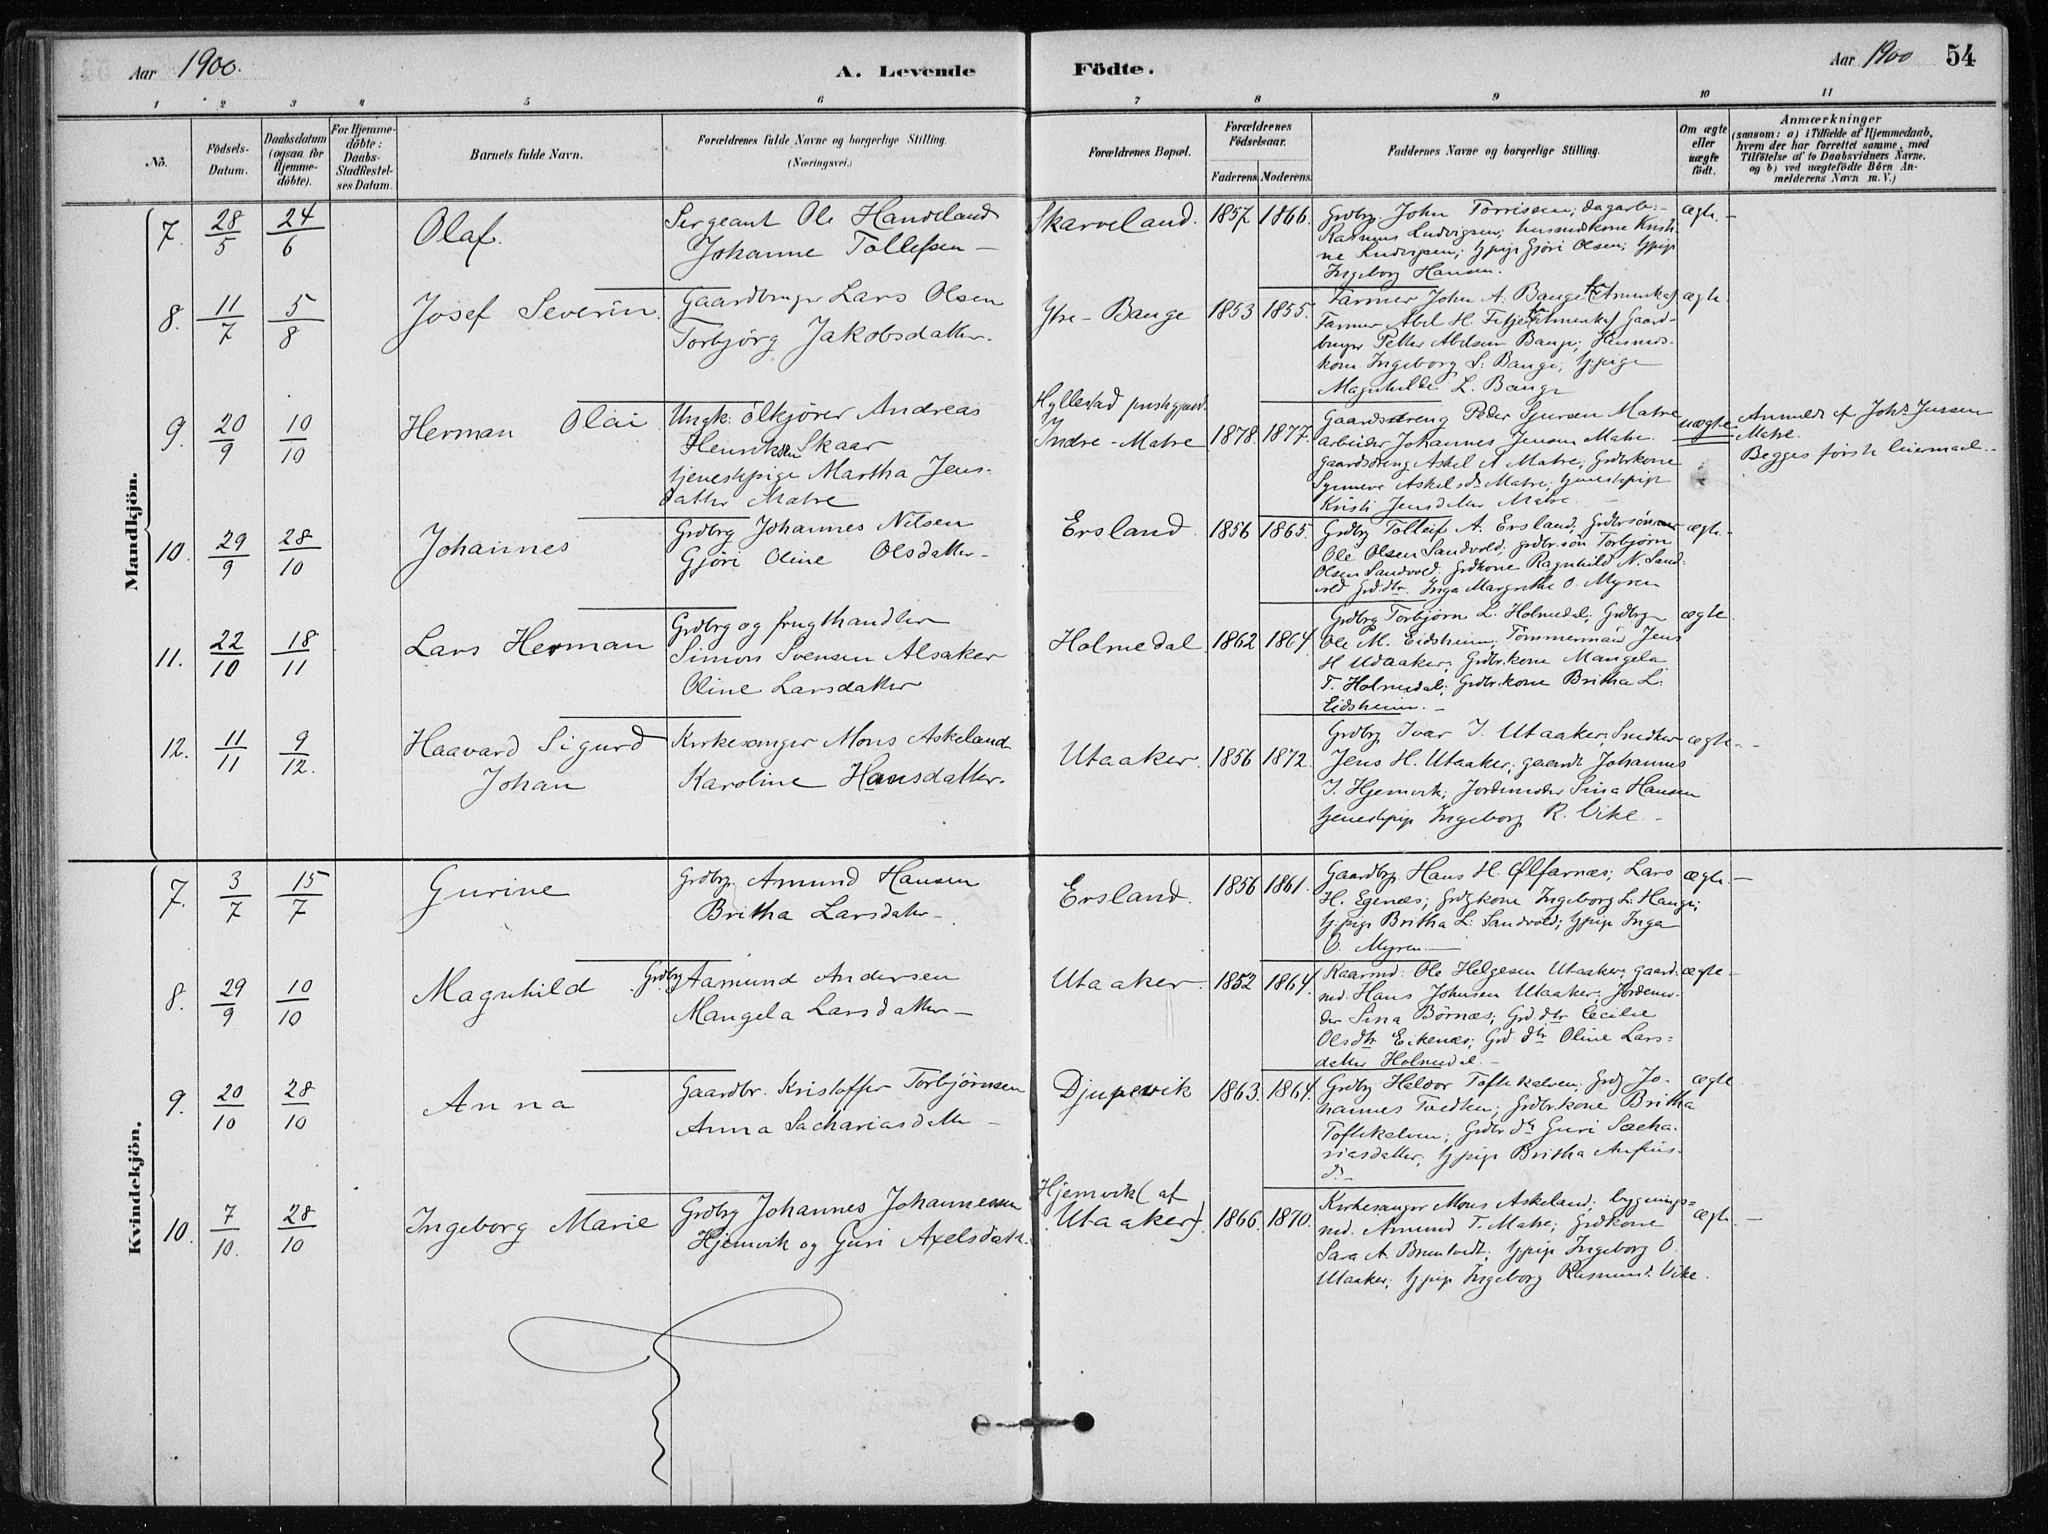 Aar 1900.
A. Levende
Födte.
Aar 1900
54
1 2 3 4 5 6 7 8 9 10 11
No.
Födsels-Datum.
Daabsdatum (ogsaa for Hjemme-döbte).
For Hjemme-döbte: Daabs-Stadfæstel-ses Datum.
Barnets fulde Navn.
Forældrenes fulde Navne og borgerlige Stilling.
(Næringsvei.)
Forældrenes Bopæl.
Forældrenes Födselsaar.
Faderens. Moderens.
Faddernes Navne og borgerlige Stilling.
Om ægte eller uægte födt.
Anmærkninger
(saasom: a) i Tilfælde af Hjemmedaab,
hvem der har forrettet samme, med
Tilföielse af to Daabsvidners Navne.
og b) ved uægtefödte Börn An-
melderens Navn m. V.)
Mandkjön.
7. 28/5 24/6 Olaf.
Sergeant Ole Handeland
Johanne Tollefsen
Skarveland. 1857. 1866.
Grdbr. John Torrissen; dagarb:
Rasmus Ludvigsen; husmdskone Kristi-
ne Ludvigsen; tjpige Gjøri Olsen; tjpige
Ingeborg Hansen.
ægte.
8. 11/7 5/8 Josef Severin.
Gaardbruger Lars Olsen
Torbjørg Jakobsdatter.
Ytre-Bauge 1853 1855.
Farmer John A. Bauge (fr Amerika)
Farmer Abel H. Fitje (fr Amerika) Gaard-
bruger Petter Abelsen Bauge; Husmds-
kone Ingeborg S. Bauge; tjpige
Magnhilde L. Bauge
ægte.
9. 20/9 10/10 Herman Olai
Ungk: ølkjører Andreas
Henriksen Skaar
tjenestepige Martha Jens-
datter Matre
Hyllestad prestegjeld.
Indre-Matre 1878. 1877.
Gaardsdreng Peder Sjursen Matre
arbeider Johannes Jensen Matre.
gaardsdreng Askel A Matre; Grdbrkone
Synneve Askelsdr Matre; tjenestepige
Kristi Jensdatter Matre.
uægte
Anmeldt af Johs Jenssen
Matre.
Begges første leiermaal.
10. 29/9 28/10 Johannes
Grdbrg Johannes Nilsen
Gjøri Oline Olsdatter
Ersland 1856 1865.
Grdbrg Tolleif A. Ersland; Grdbrsønner
Ole Olsen Sandvold; grdbr.søn Torbjørn
Olsen Sandvold. Grdkone Ragnhild N. Sand-
vold Grd.dtr. Inga Margrethe O. Myren
ægte.
11. 22/10 18/11 Lars Herman
Grdbrg og frugthandler
Simon Svensen Alsaker
Oline Larsdatter
Holmedal 1862 1864.
Grdbrg Torbjørn L. Holmedal; Grdbrg
Ole M. Eidsheim; Tømmermand Jens
H Udaaker; Grdbr.kone Mangela
T. Holmedal; Grdbr.kone Britha L.
Eidsheim.
ægte.
12. 11/11 9/12. Haavard Sigurd
Johan
Kirkesanger Mons Askeland
Karoline Hansdatter.
Utaaker. 1856 1872.
Grdbrg Ivar I. Utaaker; Snedker
Jens H. Utaaker; gaardt Johannes
I. Hjemvik; Jordemoder Sina Hansen
tjenestepige Ingeborg R. Vike.
ægte.
Kvindekjön.
7. 3/7 15/7 Gurine
Grdbrg. Amund Hansen
Britha Larsdatter
Ersland. 1856 1861.
Gaardbrg Hans H. Ølfarnæs; Lars
H. Egenæs; Grdbrkone Ingeborg L. Hauge;
tj.pige Britha L. Sandvold; tjpige Inga
O. Myren.
ægte.
8. 29/9 10/10 Magnhild
Grdbrg Aamund Andersen
Mangela Larsdatter
Utaaker. 1852 1864.
Kaarmd: Ole Helgesen Utaaker; gaard-
md. Hans Johnsen Utaaker; Jordemo-
der Sina Børnæs; Grd.dtr Cecilie
Olsdtr Eikenæs; Grd.dtr Oline Lars-
datter Holmedal.
ægte
9. 20/10 28/10 Anna
Gaardbr. Kristoffer Torbjørnsen
Anna Sachariasdatter
Djupevik 1863. 1864.
Grdbrg Haldor Toftekalven; Grdbrg Jo-
hannes Tvedten; Grdbrkone Britha
Toftekalven; Grdbr dtr Guri Sacha-
riasdatter; tjpige Britha
ægte
10. 7/10. 28/10 Ingeborg Marie
Grdbrg Johannes Johannessen
Hjemvik og Guri Axelsdatr.
Hjemvik (af
Utaaker). 1866. 1870.
Kirkesanger Mons Askeland; bygnings-
md. Amund T. Matre; Grdkone
Sara A. Brudtvedt; tjpige Ingeborg O.
Utaaker; tjpige Ingeborg Rasmusd. Vike.
ægte